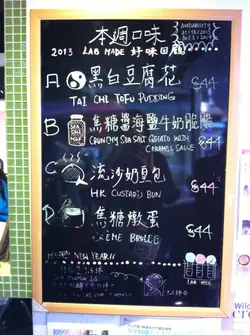 本週口味
2013 LAB MADE 好味回顧
A 黑白豆腐花 $44
TAI CHI TOFU PUDDING
B 焦糖醬海鹽牛奶脆脆 $44
CRUNCHY SEA SALT GELATO WITH
CARAMEL SAUCE
C 流沙奶皇包 $44
HK CUSTARD BUN
D 焦糖燉蛋 $44
CRÈME BRULEE
HAPPY NEW YEAR!!
LAB MADE
Wild